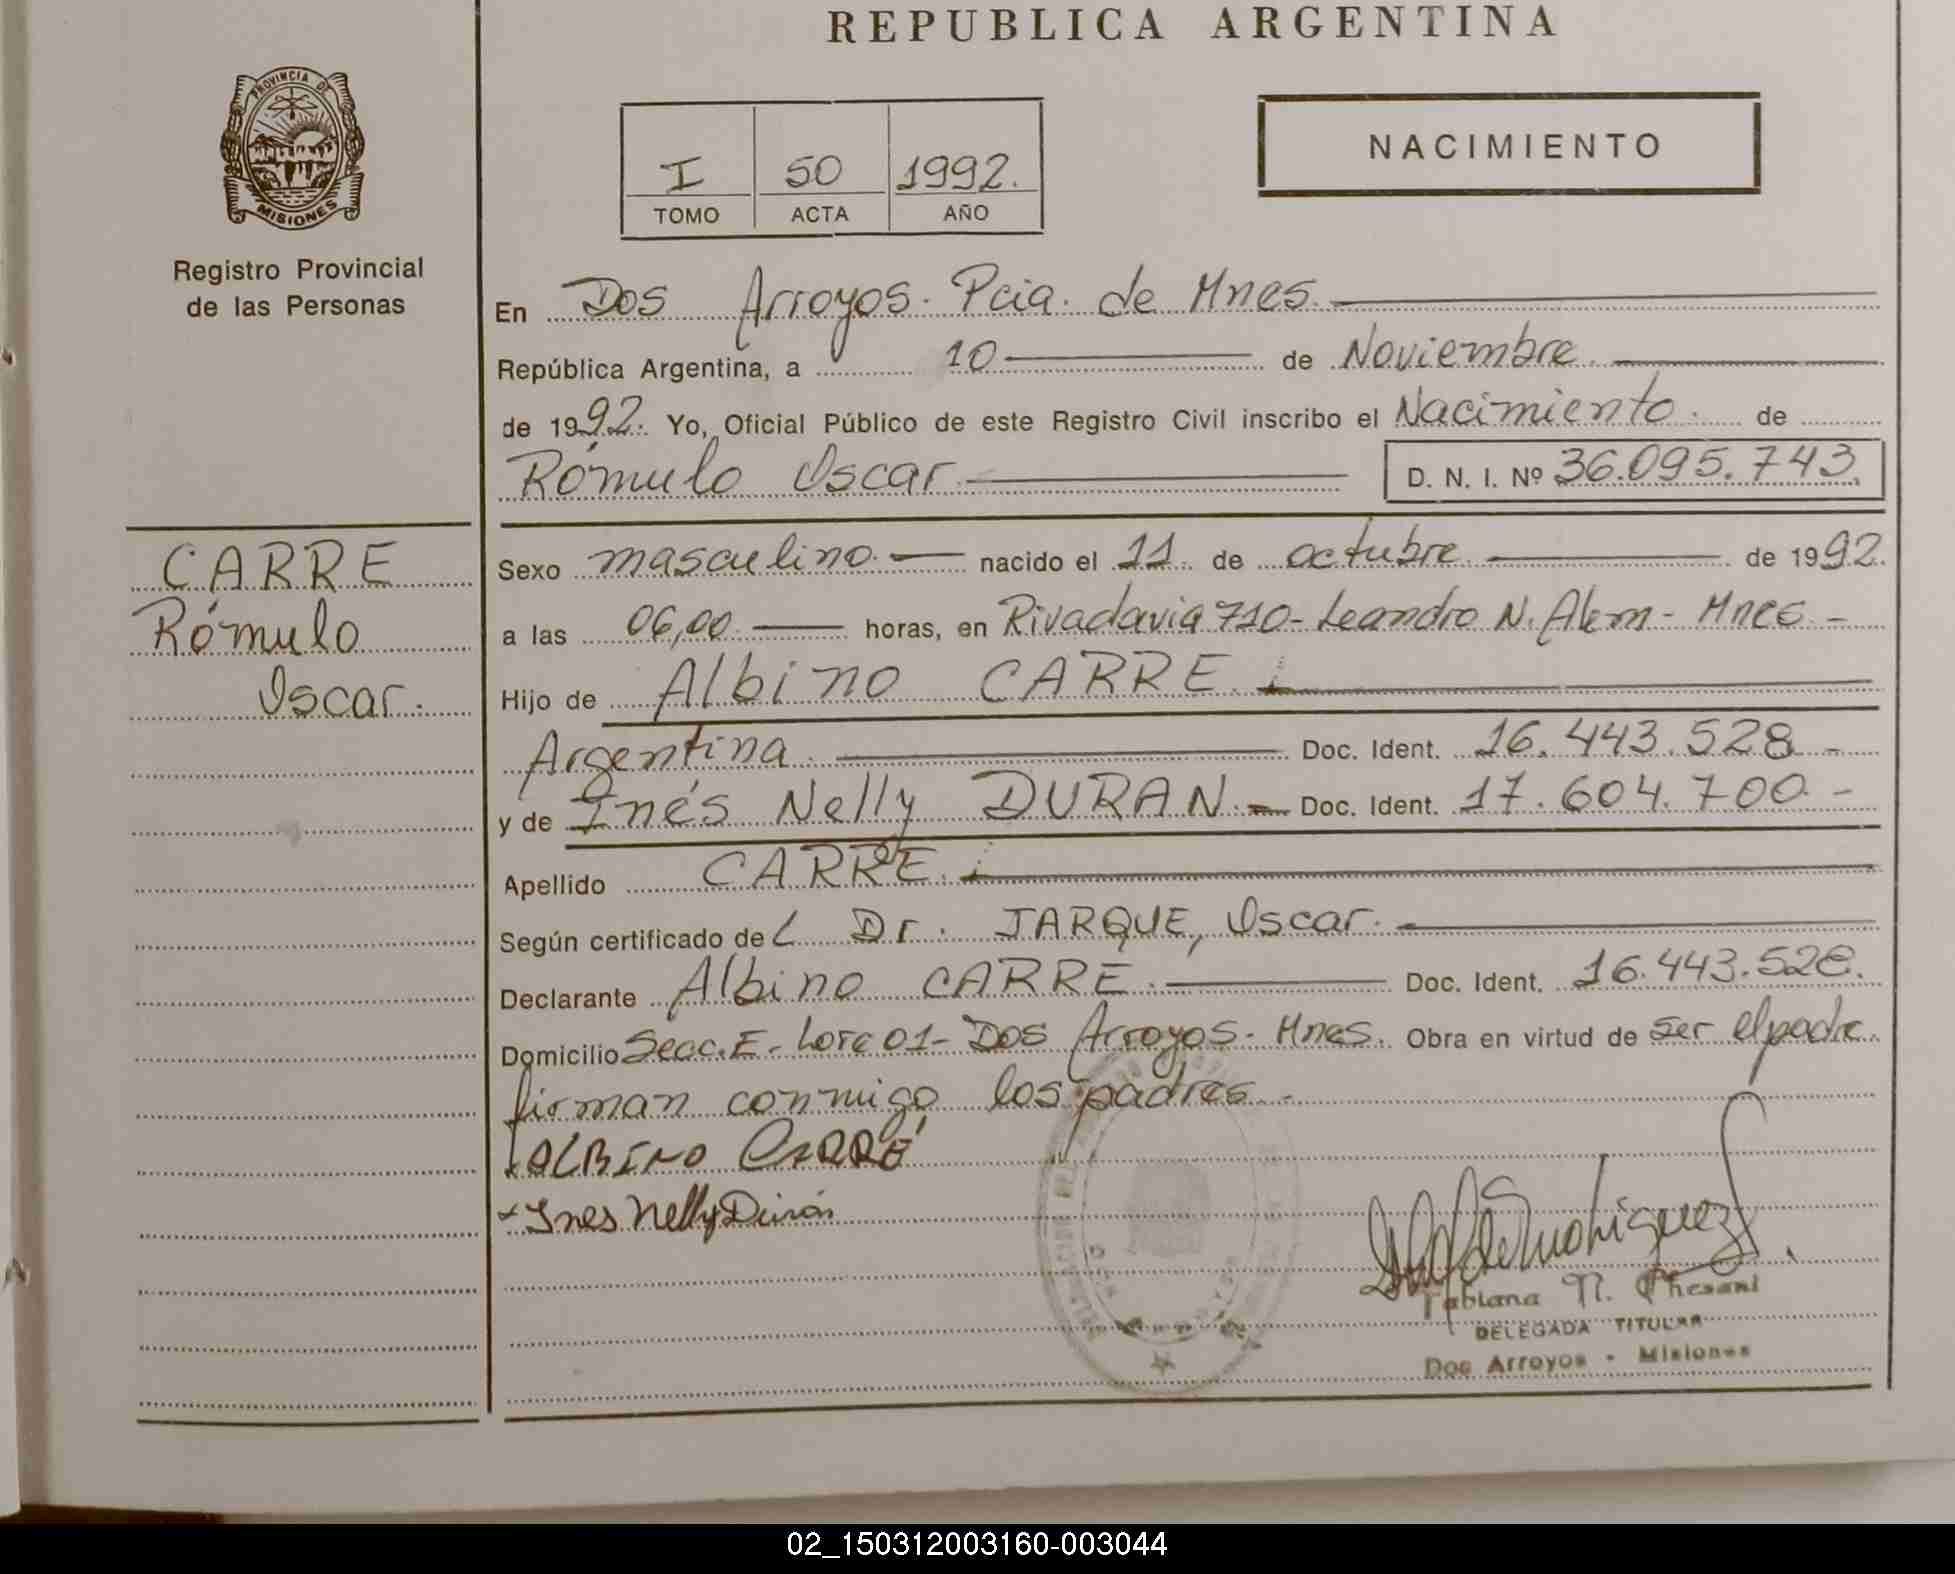 REPUBLICA ARGENTINA
PROVINCIA DE
MISIONES
Registro Provincial
de las Personas
I 50 1992.
TOMO ACTA AÑO
NACIMIENTO
En Dos Arroyos. Pcia. de Mnes.
República Argentina, a 10 de Noviembre
de 1992. Yo, Oficial Público de este Registro Civil inscribo el Nacimiento. de
Rómulo Oscar. D. N. I. Nº 36.095.743.
CARRE
Rómulo
Oscar.
Sexo masculino. nacido el 11. de octubre. de 1992.
a las 06,00. horas, en Rivadavia 710- Leandro N. Alem - Mnes -
Hijo de Albino CARRE.
Argentina. Doc. Ident. 16.443.528 -
y de Inés Nelly DURAN. Doc. Ident. 17.604.700. -
Apellido CARRE.
Según certificado del Dr. JARQUE, Oscar.
Declarante Albino CARRE. Doc. Ident. 16.443.528.
Domicilio Secc. E - Lote 01 - Dos Arroyos - Mnes. Obra en virtud de ser el padre.
firman conmigo los padres. -
ALBINO CARRÉ
Ines Nelly Durán
Fabiana
DELEGADA TITULAR
Dos Arroyos - Misiones
02_150312003160-003044